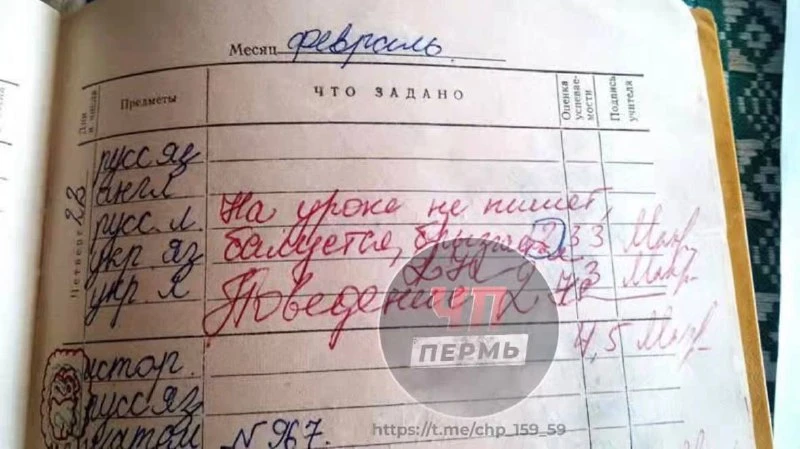 Месяц февраль
Дни и числа Предметы ЧТО ЗАДАНО Оценка успевае- мости Подпись учителя
Четверг 22
русс яз
англ
русс. л. На уроке не пишет,
укр. яз балуется, 2 3 3
укр. л 3
Поведение 2
4,5
истор.
русс яз
матом N 967.
ЧП
ПЕРМЬ
https://t.me/chp_159_59